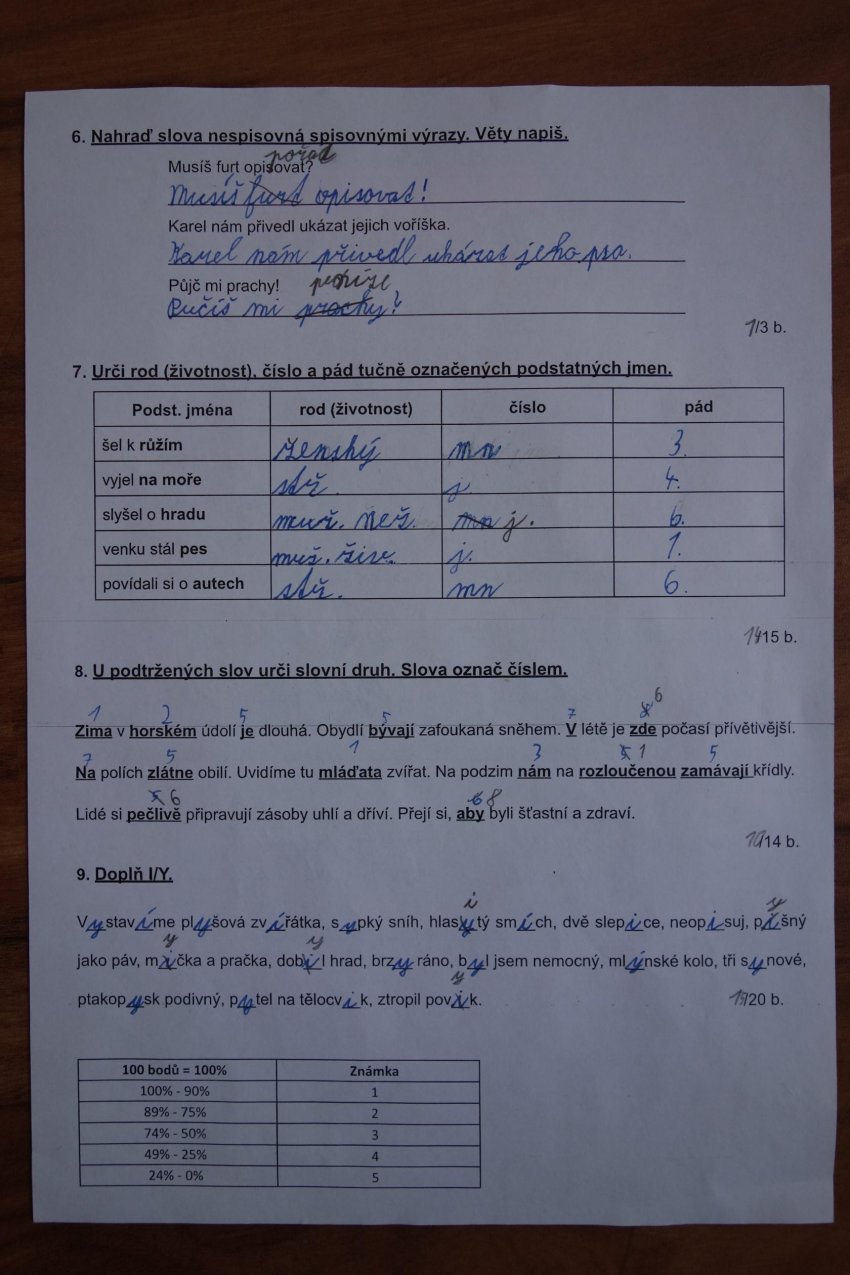 6. Nahraď slova nespisovná spisovnými výrazy. Věty napiš.
pořád
Musíš furt opisovat?
Musíš furt opisovat!
Karel nám přivedl ukázat jejich voříška.
Karel nám přivedl ukázat jeho psa.
Půjč mi prachy!
peníze
Pučíš mi prachy?
1/3 b.
7. Urči rod (životnost), číslo a pád tučně označených podstatných jmen.
Podst. jména rod (životnost) číslo pád
šel k růžím ženský mn 3.
vyjel na moře stř. j. 4.
slyšel o hradu muž. než. mn j. 6.
venku stál pes muž. živ. j. 1.
povídali si o autech stř. mn 6.
14/15 b.
8. U podtržených slov urči slovní druh. Slova označ číslem.
1 2 5 5 7 6
Zima v horském údolí je dlouhá. Obydlí bývají zafoukaná sněhem. V létě je zde počasí přívětivější.
7 5 1 3 1 5
Na polích zlátne obilí. Uvidíme tu mláďata zvířat. Na podzim nám na rozloučenou zamávají křídly.
6 6 8
Lidé si pečlivě připravují zásoby uhlí a dříví. Přejí si, aby byli šťastní a zdraví.
10/14 b.
9. Doplň I/Y.
i y
Vystavíme plyšová zvířátka, sypký sníh, hlasytý smích, dvě slepice, neopisuj, píšný
y y
jako páv, mička a pračka, dobil hrad, brzy ráno, byl jsem nemocný, mlýnské kolo, tři synové,
y
ptakopysk podivný, pytel na tělocvik, ztropil povik.
/20 b.
100 bodů = 100% Známka
100% - 90% 1
89% - 75% 2
74% - 50% 3
49% - 25% 4
24% - 0% 5